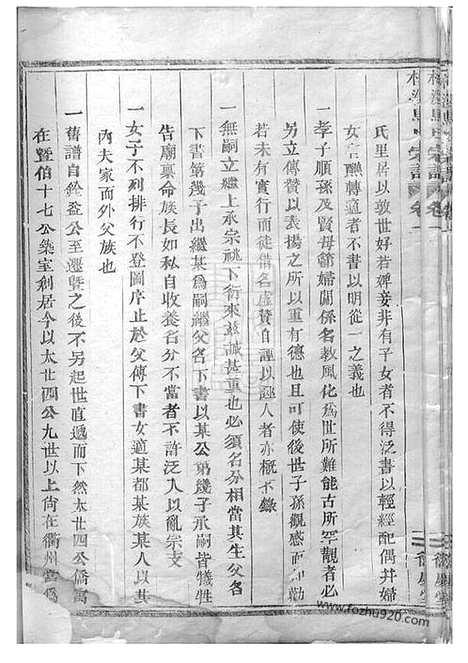 氏里居以敦世好若婢妾非有子女者不得泛書以輕經配偶并婦
女言醮轉適者不書以明從一之義也
一孝子順孫及賢母節婦關係名教風化為世所難能古所罕觀者必
另立傳贊以表揚之所以重有德也且使後世子孫觀感而興
若未有實行而徒借名虛贊自誣以誣人者亦概不錄
一無嗣立繼上承宗祧下衍來茲誠甚重也必須名分相當其生父名
下書第幾子出繼某為嗣繼父名下書以某公第幾子承嗣皆犧牲
告廟稟命族長如私自收養名分不當者不許泛入以亂宗支
一女子不列排行不登圖序止於父傳下書女適某都某族某人以其
內夫家而外父族也
一舊譜自銓公至遷暨之後不另起世直遞而下然太廿四公僑寓
在暨伯十七公築室創居今以太廿四公九世以上尚在衢州當為
宗譜 卷一
www.fozhu920.com